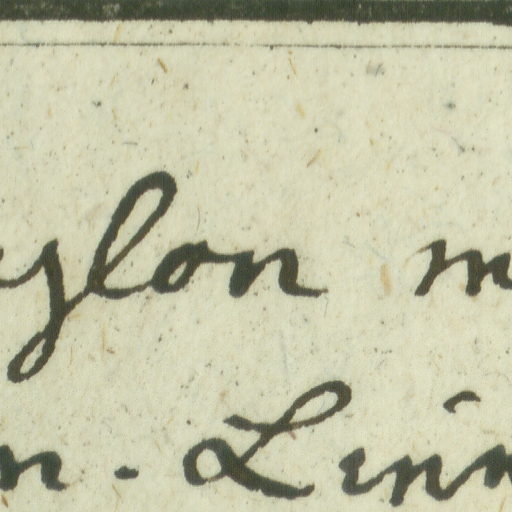 ylon m
n. Linn